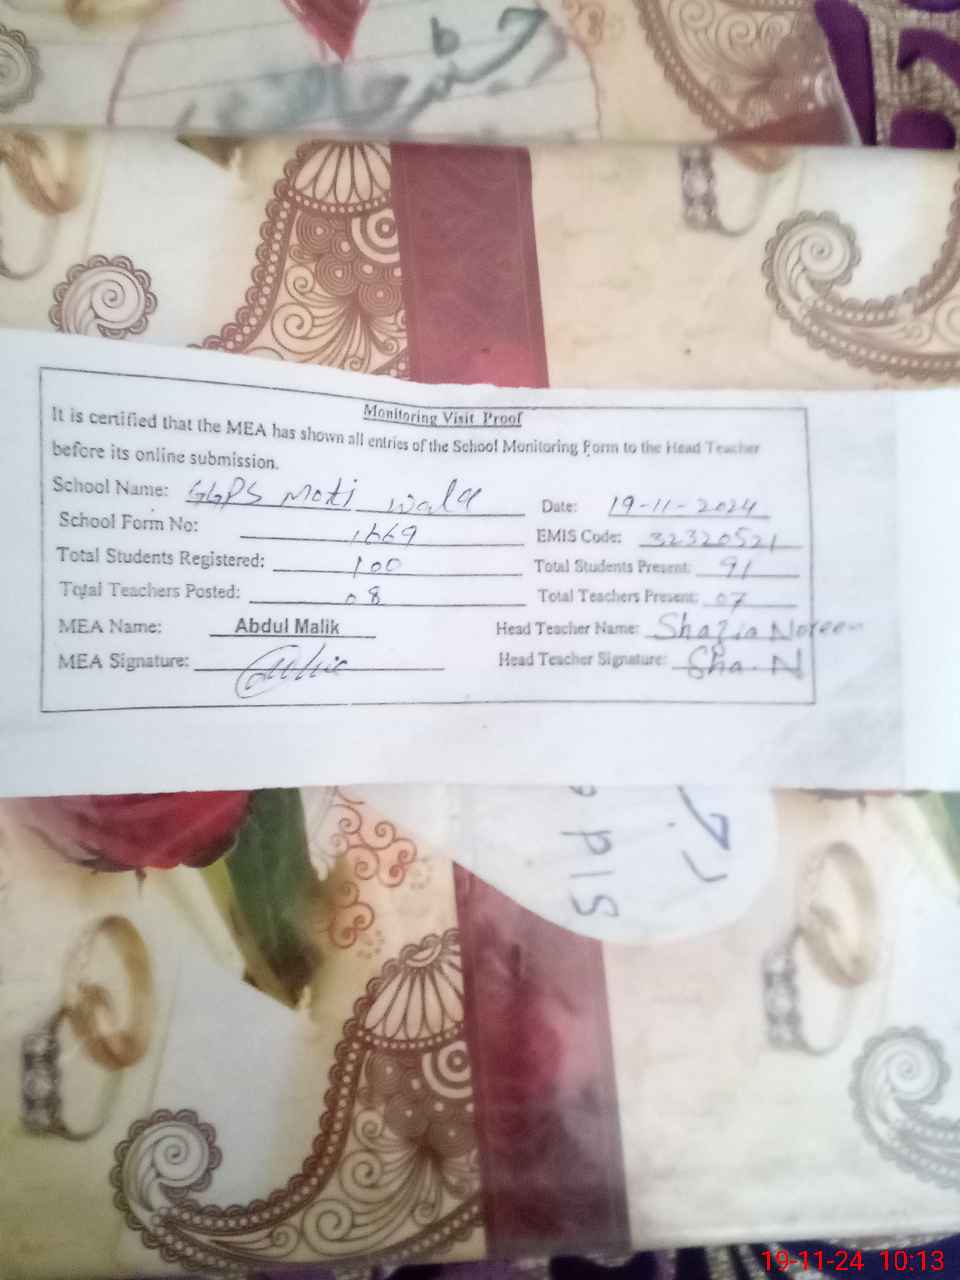 Monitoring Visit Proof
It is certified that the MEA has shown all entries of the School Monitoring Form to the Head Teacher
before its online submission.
School Name: GGPS Moti wala Date: 19-11-2024
School Form No: 1669 EMIS Code: 32320521
Total Students Registered: 100 Total Students Present: 91
Total Teachers Posted: 08 Total Teachers Present: 07
MEA Name: Abdul Malik Head Teacher Name: Shazia Noreen
MEA Signature: Head Teacher Signature: Sha. N
19-11-24 10:13